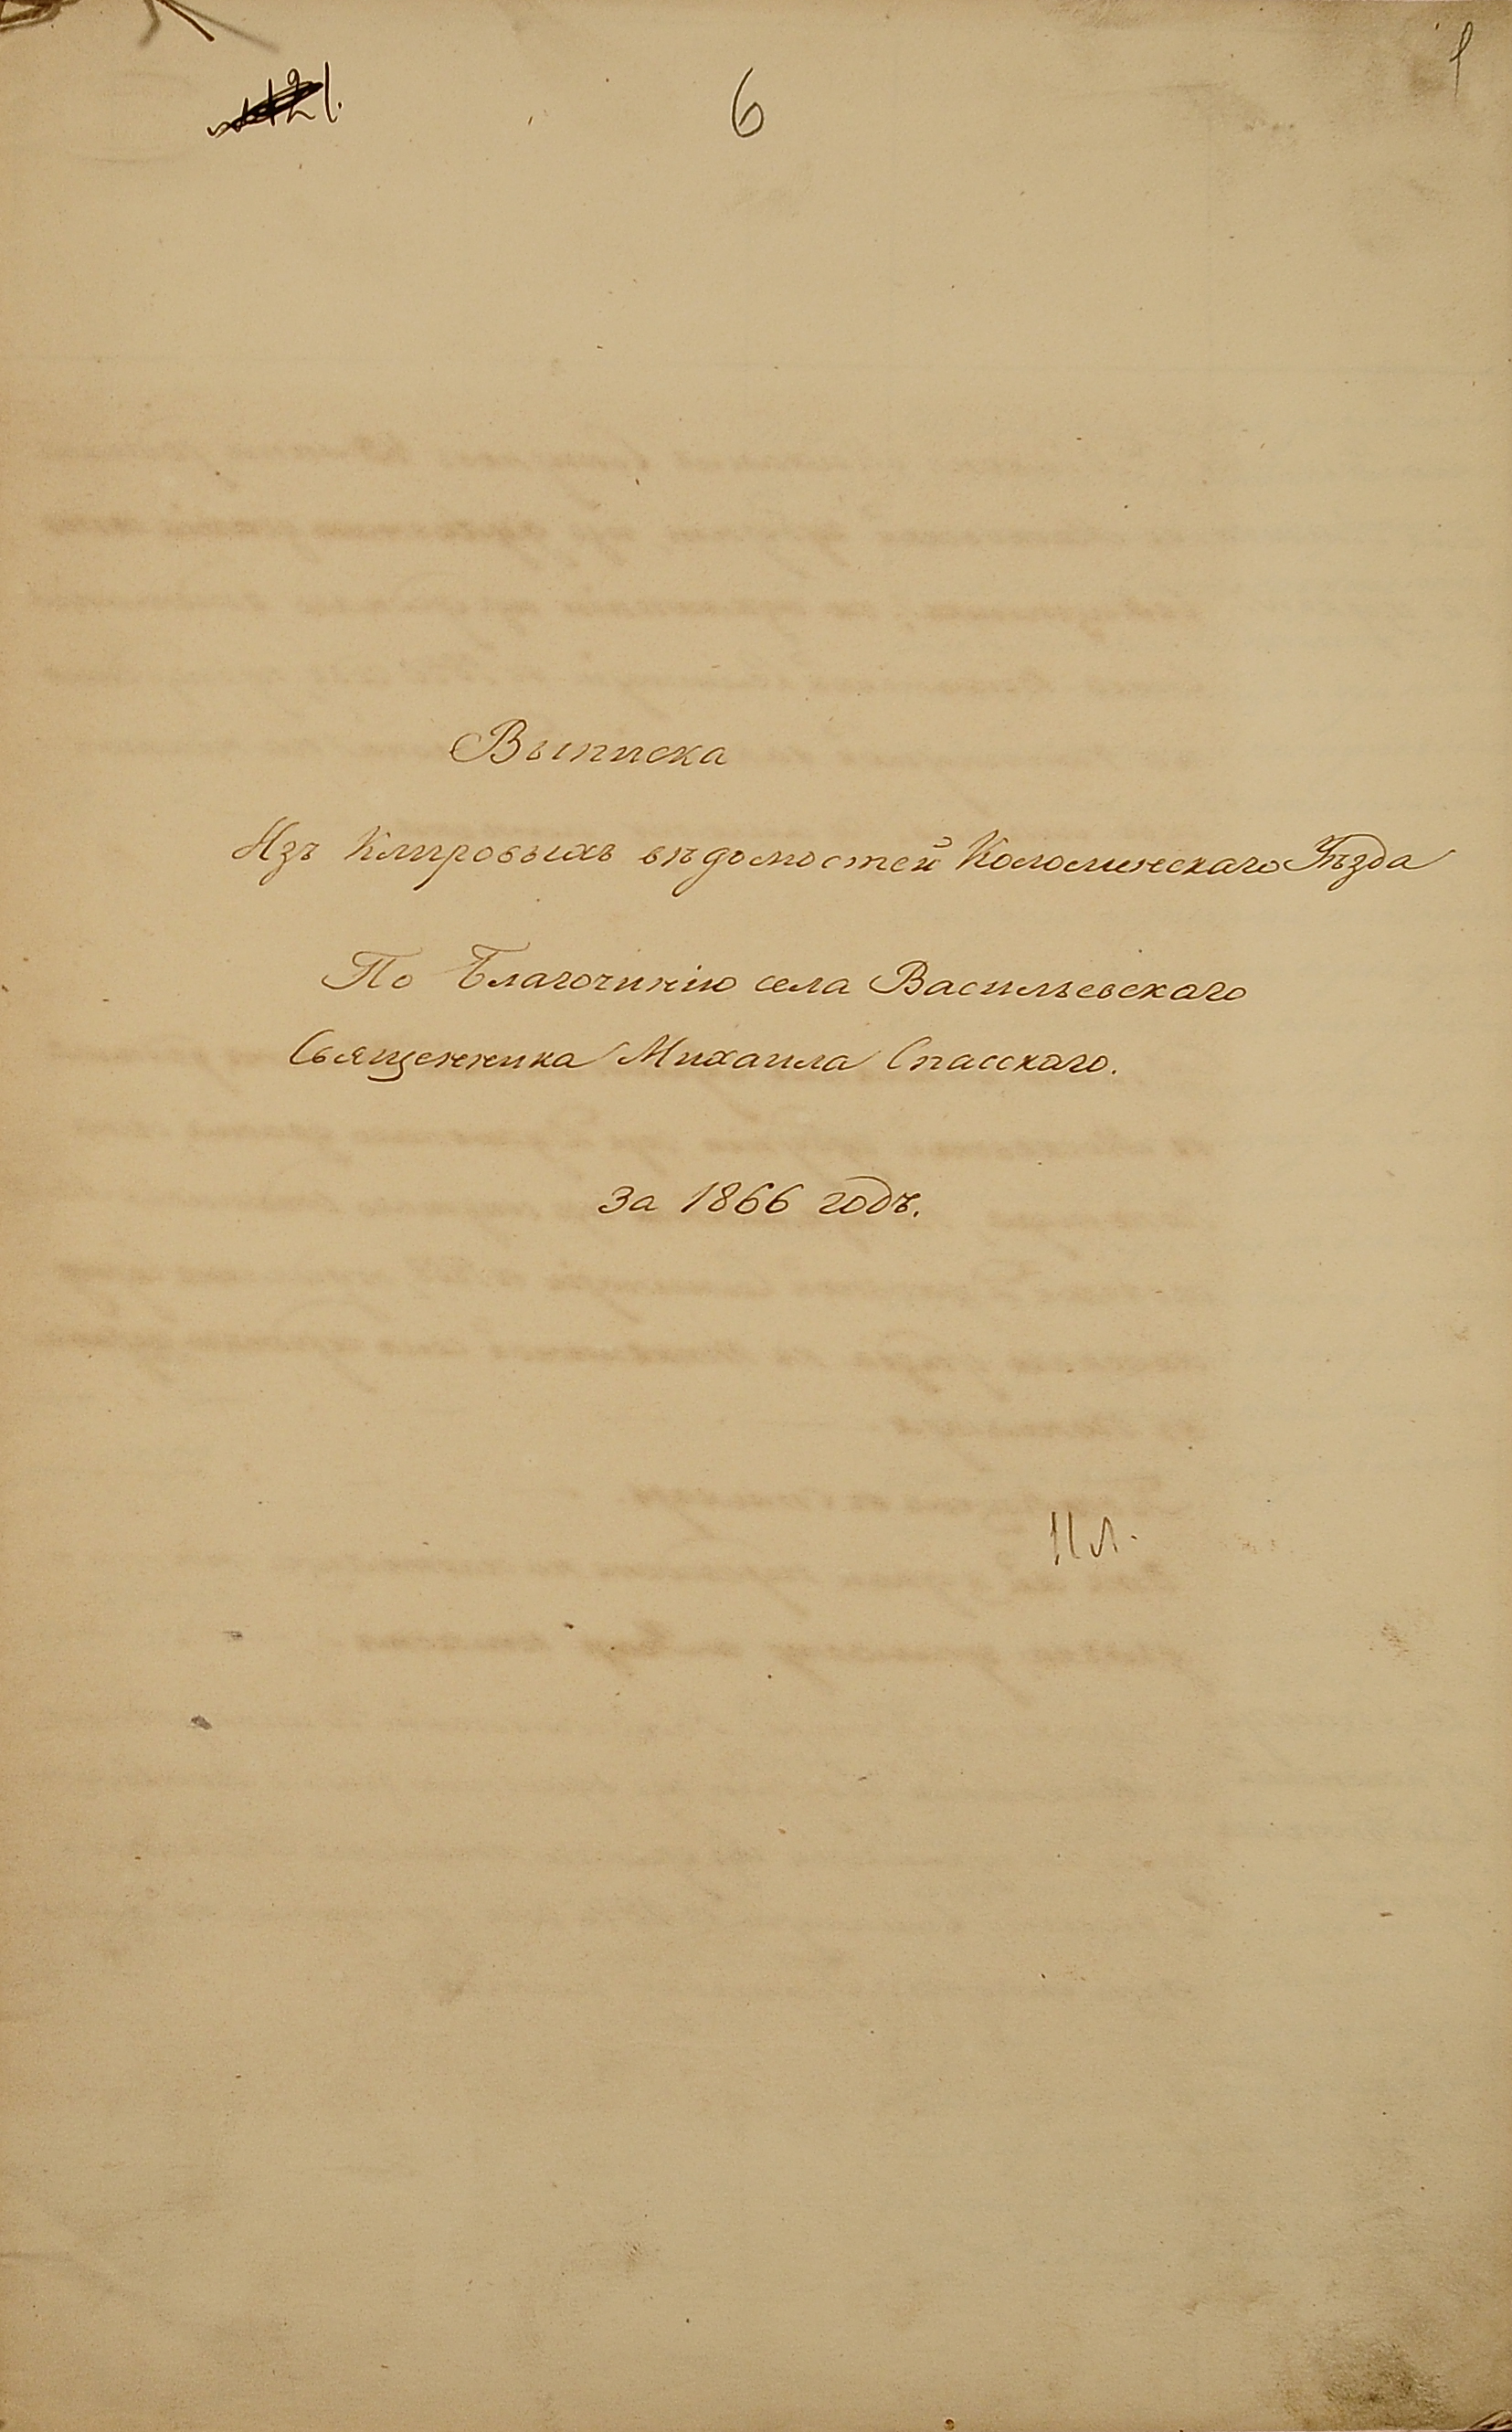 6
1
Выписка
Изъ Клировыхъ вѣдомостей Коломенскаго Уѣзда
По Благочинію села Васильевскаго
Священника Михаила Спасскаго.
За 1866 годъ.
11 л.